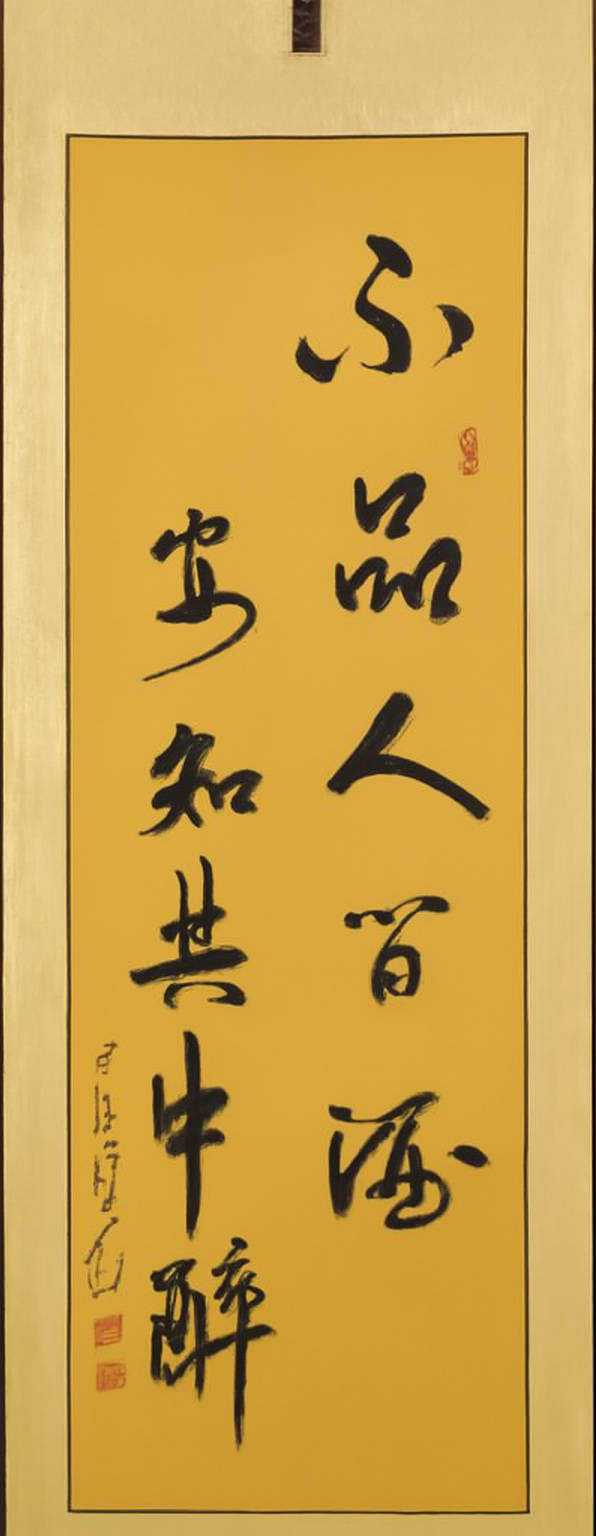 不品人間酒
安知其中醉